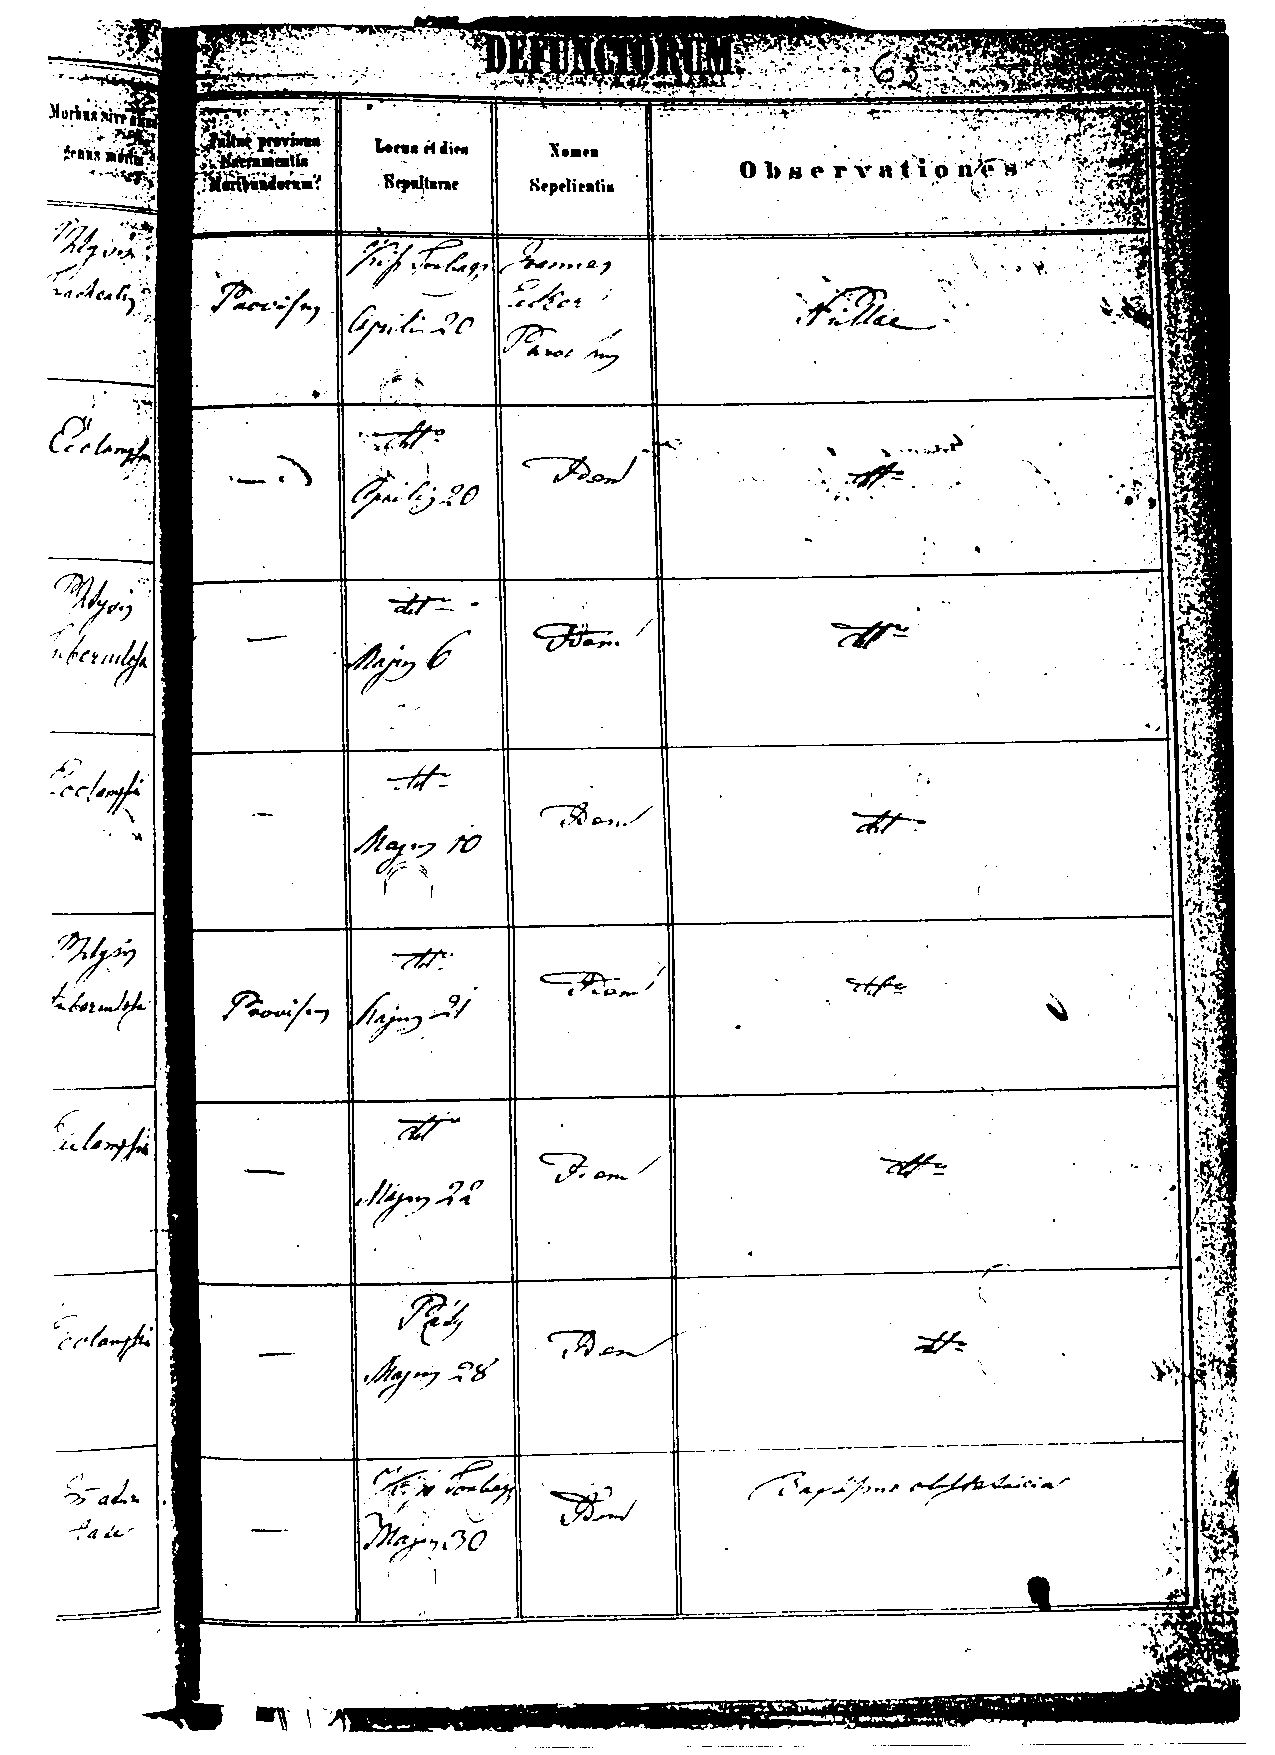 DEFUNCTORUM.
63
Morbus sive
genus mortis
Fuitne provisus
Sacramentis
Moribundorum?
Locus et dies
Sepulturae
Nomen
Sepelientis
Observationes
Provisus
Aprilis 20
Joannes
Ecker
Parochus
Nullae
Eclampsia
—
detto
Aprilis 20
Idem
detto
Tuberculosa
—
detto
Majus 6
Idem
detto
Ecclampsia
—
detto
Majus 10
Idem
detto
tuberculosa
Provisus
detto
Majus 21
Idem
detto
Eclampsia
—
detto
Majus 22
Idem
detto
Ecclampsia
—
Majus 28
Idem
detto
—
Majus 30
Idem